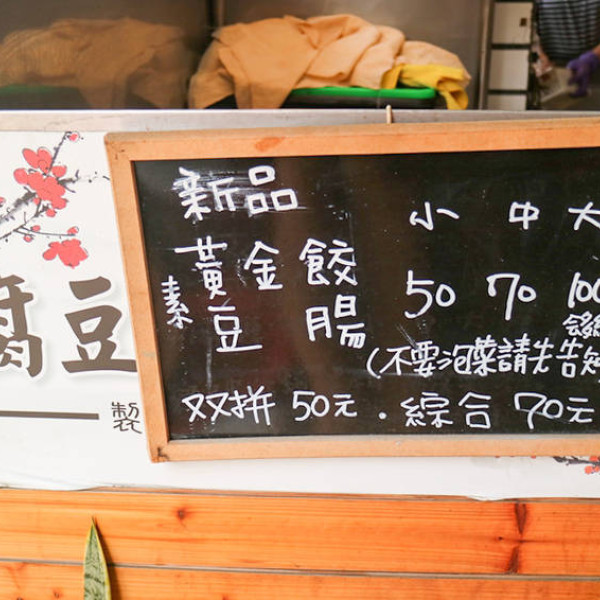 新品
小 中 大
黃金餃
素豆腸
50 70 100
(不要泡菜請先告知
双拼 50元 . 綜合 70元
腐豆
製